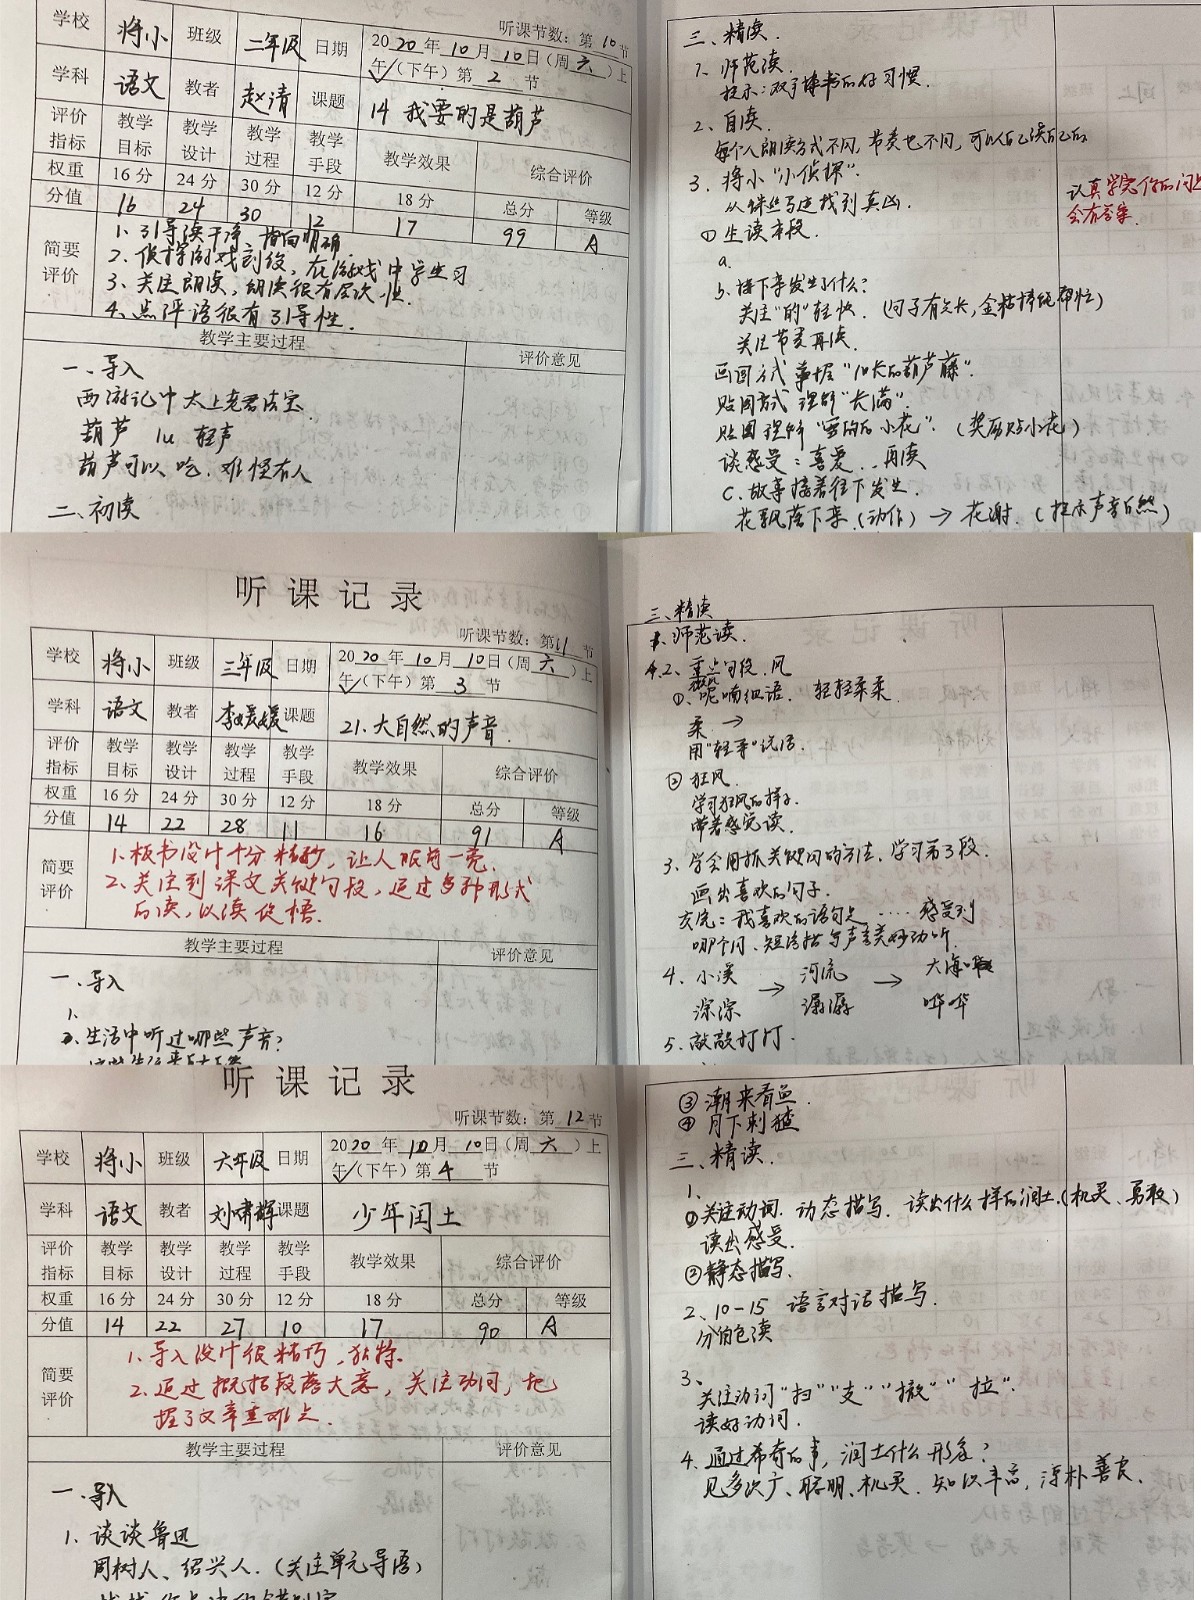 听课节数：第 10 节
学校 将小 班级 二年级 日期 2020年10月10日（周六）上
午√（下午）第 2 节
学科 语文 教者 赵清 课题 14 我要的是葫芦
评价指标 教学目标 教学设计 教学过程 教学手段 教学效果 综合评价
权重 16分 24分 30分 12分 18分 总分 等级
分值 16 24 30 12 17 99 A
简要评价
1、引导读干净，指向明确
2、侦探游戏到位，在游戏中学生习
3、关注朗读，朗读很有层次性.
4、点评语很有引导性.
教学主要过程 评价意见
一、导入
西游记中太上老君法宝
葫芦 lu 轻声
葫芦可以吃.难怪有人
二、初读
三、精读.
1、师范读.
提示：双手捧书的好习惯
2、自读.
每个人朗读方式不同,节奏也不同,可以自己读自己的
3、将小“小侦探”.
从蛛丝马迹找到真凶.
① 生读本段.
a.
b、接下来发生了什么?
关注“的”轻快.（句子有点长,金箍棒来帮忙）
关注节奏再读.
画图方式 掌握“细长的葫芦藤”.
贴图方式 理解“长满”.
贴图理解“雪白的小花”.（奖励贴小花）
谈感受：喜爱..再读
C、故事接着往下发生.
花飘落下来（动作）→ 花谢.（提示声音自然）
会有答案.
听课记录
听课节数：第11节
学校 将小 班级 三年级 日期 2020年10月10日（周六）上
午√（下午）第 3 节
学科 语文 教者 李媛媛 课题 21.大自然的声音.
评价指标 教学目标 教学设计 教学过程 教学手段 教学效果 综合评价
权重 16分 24分 30分 12分 18分 总分 等级
分值 14 22 28 11 16 91 A
简要评价
1、板书设计十分精妙，让人眼前一亮.
2、关注到课文关键句段，通过多种形式
的读,以读促悟.
教学主要过程 评价意见
一、导入
1.
2、生活中听过哪些声音?
三、精读
1、师范读.
2、重点句段.风
①、呢喃细语. 轻轻柔柔
柔 →
用“轻柔”说话.
② 狂风.
学习狂风的样子.
带着感觉读.
3、学会用抓关键词的方法,学习第3段.
画出喜欢的句子.
交流：我喜欢的语句是……感受到
哪个词、短语描写声音美妙动听.
4、小溪 → 河流 → 大海
淙淙 潺潺 哗哗
5、敲敲打打.
听课记录
听课节数：第 12 节
学校 将小 班级 六年级 日期 2020年10月10日（周六）上
午√（下午）第 4 节
学科 语文 教者 刘啸辉 课题 少年闰土
评价指标 教学目标 教学设计 教学过程 教学手段 教学效果 综合评价
权重 16分 24分 30分 12分 18分 总分 等级
分值 14 22 27 10 17 90 A
简要评价
1、导入设计很精巧，独特.
2、通过概括段落大意，关注动词，把
握了文章重难点.
教学主要过程 评价意见
一、导入
1、谈谈鲁迅
周树人、绍兴人.（关注单元导语）
③ 潮来看鱼.
④ 月下刺猹
三、精读.
1、
①关注动词.动态描写. 读出什么样的闰土.（机灵、勇敢）
读出感受.
②静态描写.
2、10-15 语言对话描写.
分角色读
3、
关注动词“扫”“支”“撒”“拉”.
读好动词.
4、通过稀奇的事，闰土什么形象?
见多识广、聪明、机灵.知识丰富，淳朴善良.